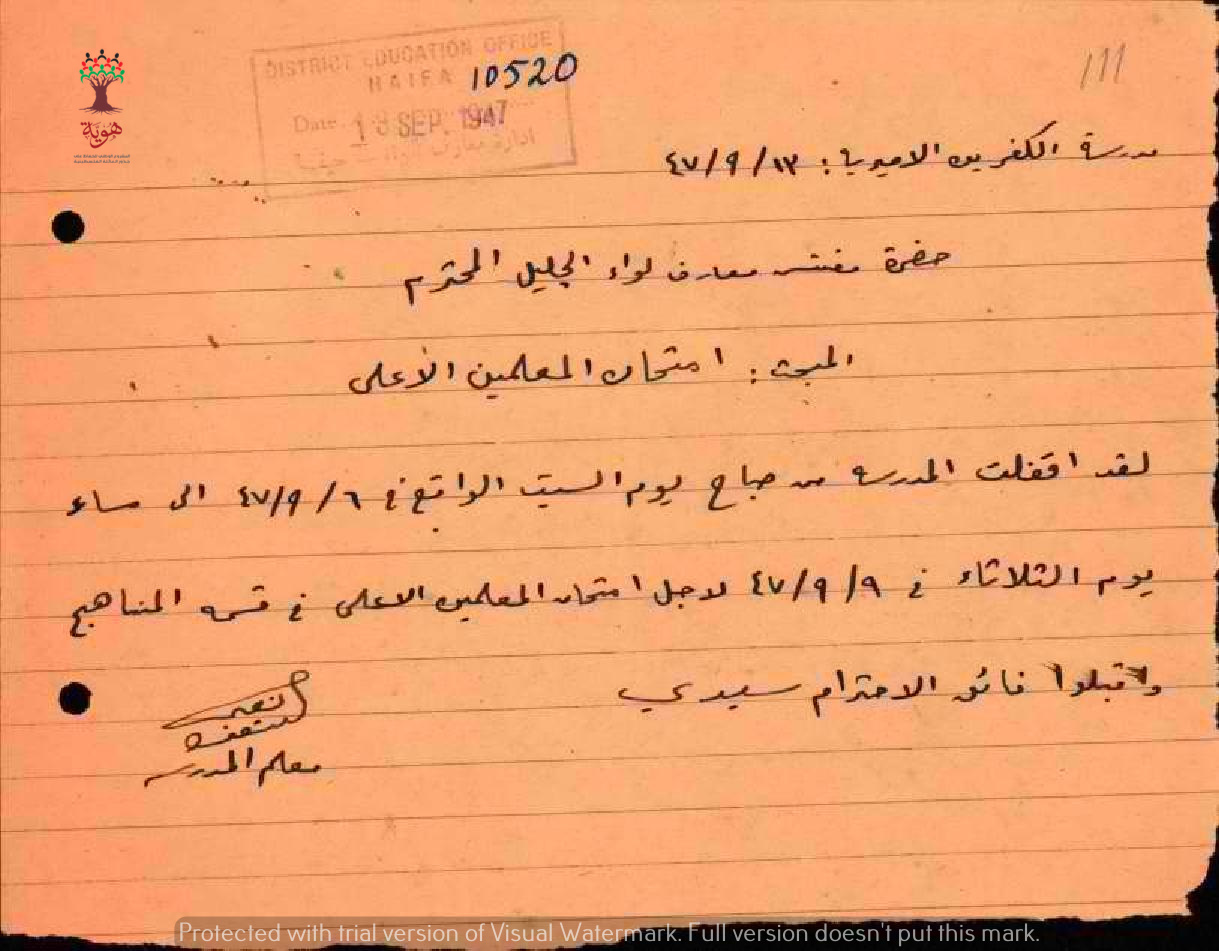 DISTRICT EDUCATION OFFICE
HAIFA 10520
Date 18 SEP. 1947
ادارة معارف لواء حيفا
111
هوية
مدرسة الكفرين الاميرية : ١٣ / ٩ / ٤٧
حضرة مفتش معارف لواء الجليل المحترم
المبحث : امتحان المعلمين الأعلى
لقد اقفلت المدرسة من صباح يوم السبت الواقع في ٦ / ٩ / ٤٧ الى مساء
يوم الثلاثاء في ٩ / ٩ / ٤٧ لاجل امتحان المعلمين الاعلى في قسمه المناهج
واقبلوا فائق الاحترام سيدي
معلم المدرسة
Protected with trial version of Visual Watermark. Full version doesn't put this mark.